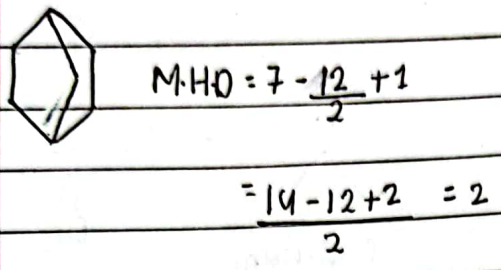 M.H.D = 7 - 12/2 + 1
= 14 - 12 + 2 / 2 = 2